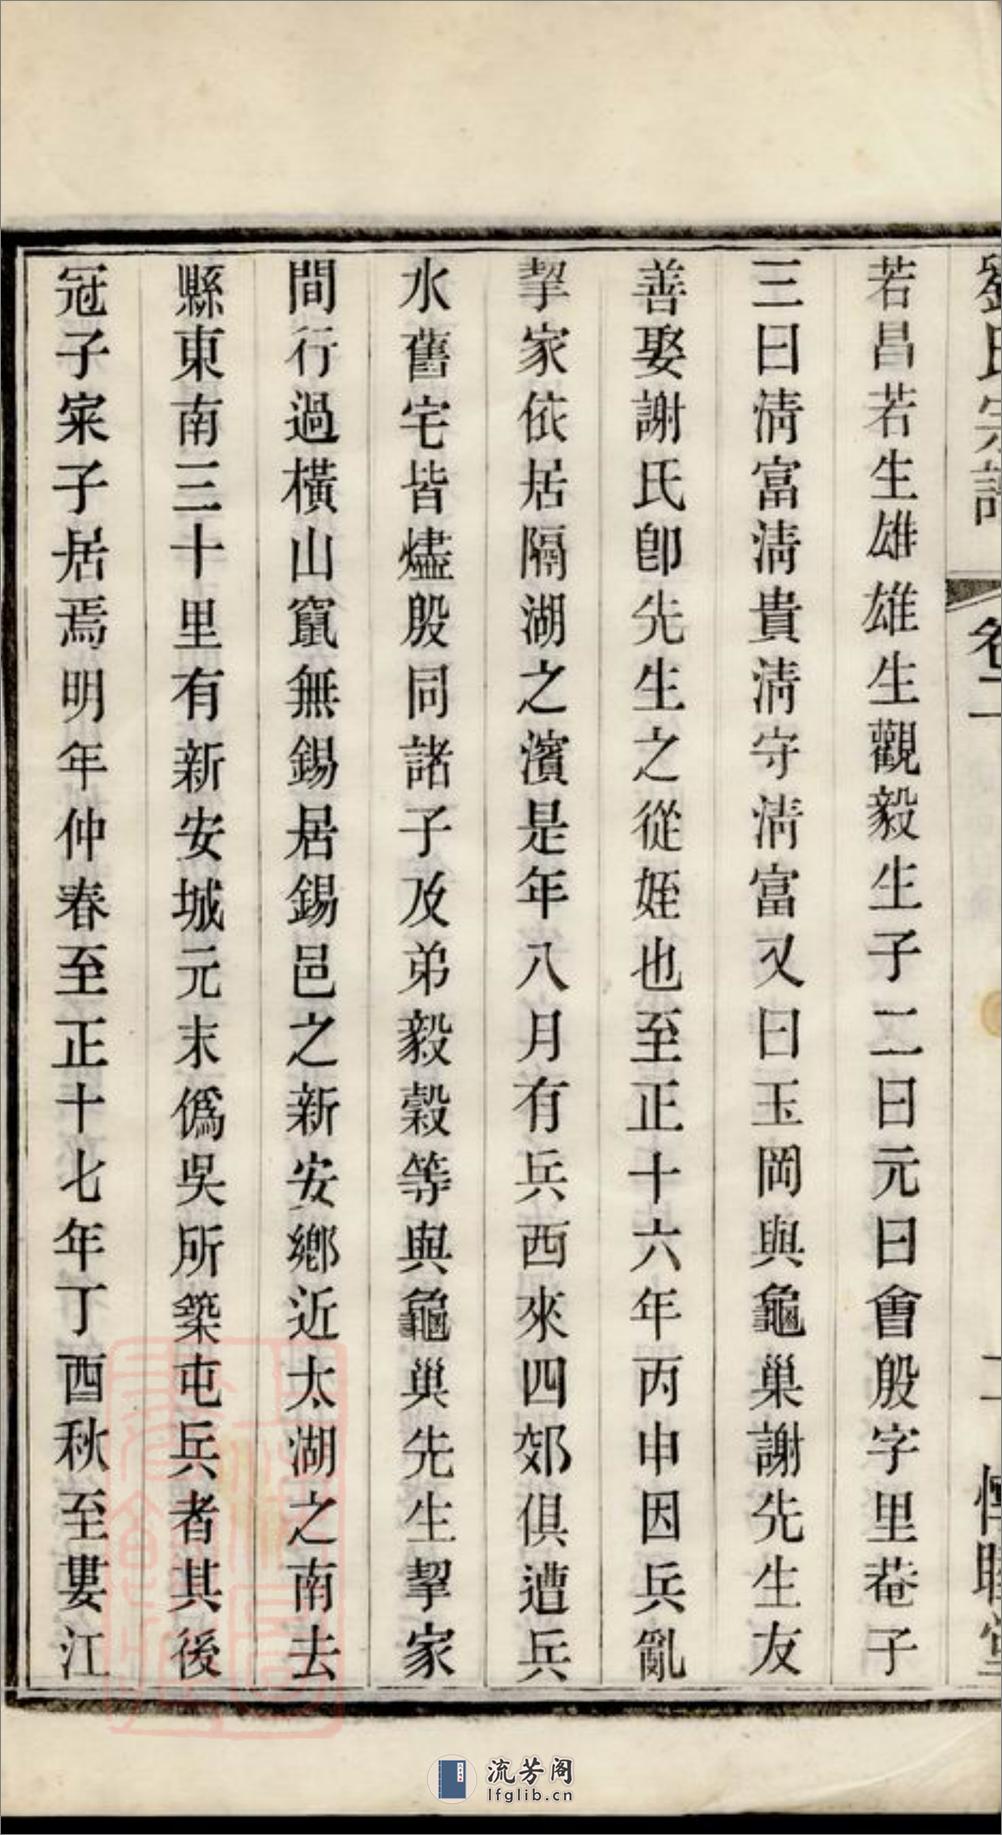 劉氏宗譜 卷二 二 惇睦堂
若昌若生雄雄生觀毅生子二曰元曰會殷字里菴子
三曰淸富淸貴淸守淸富又曰玉岡與龜巢謝先生友
善娶謝氏卽先生之從姪也至正十六年丙申因兵亂
挈家依居隔湖之濱是年八月有兵西來四郊俱遭兵
水舊宅皆燼殷同諸子及弟毅穀等與龜巢先生挈家
間行過橫山竄無錫居錫邑之新安鄉近太湖之南去
縣東南三十里有新安城元末僞吳所築屯兵者其後
冠子寀子居焉明年仲春至正十七年丁酉秋至婁江
流芳阁
lfglib.cn